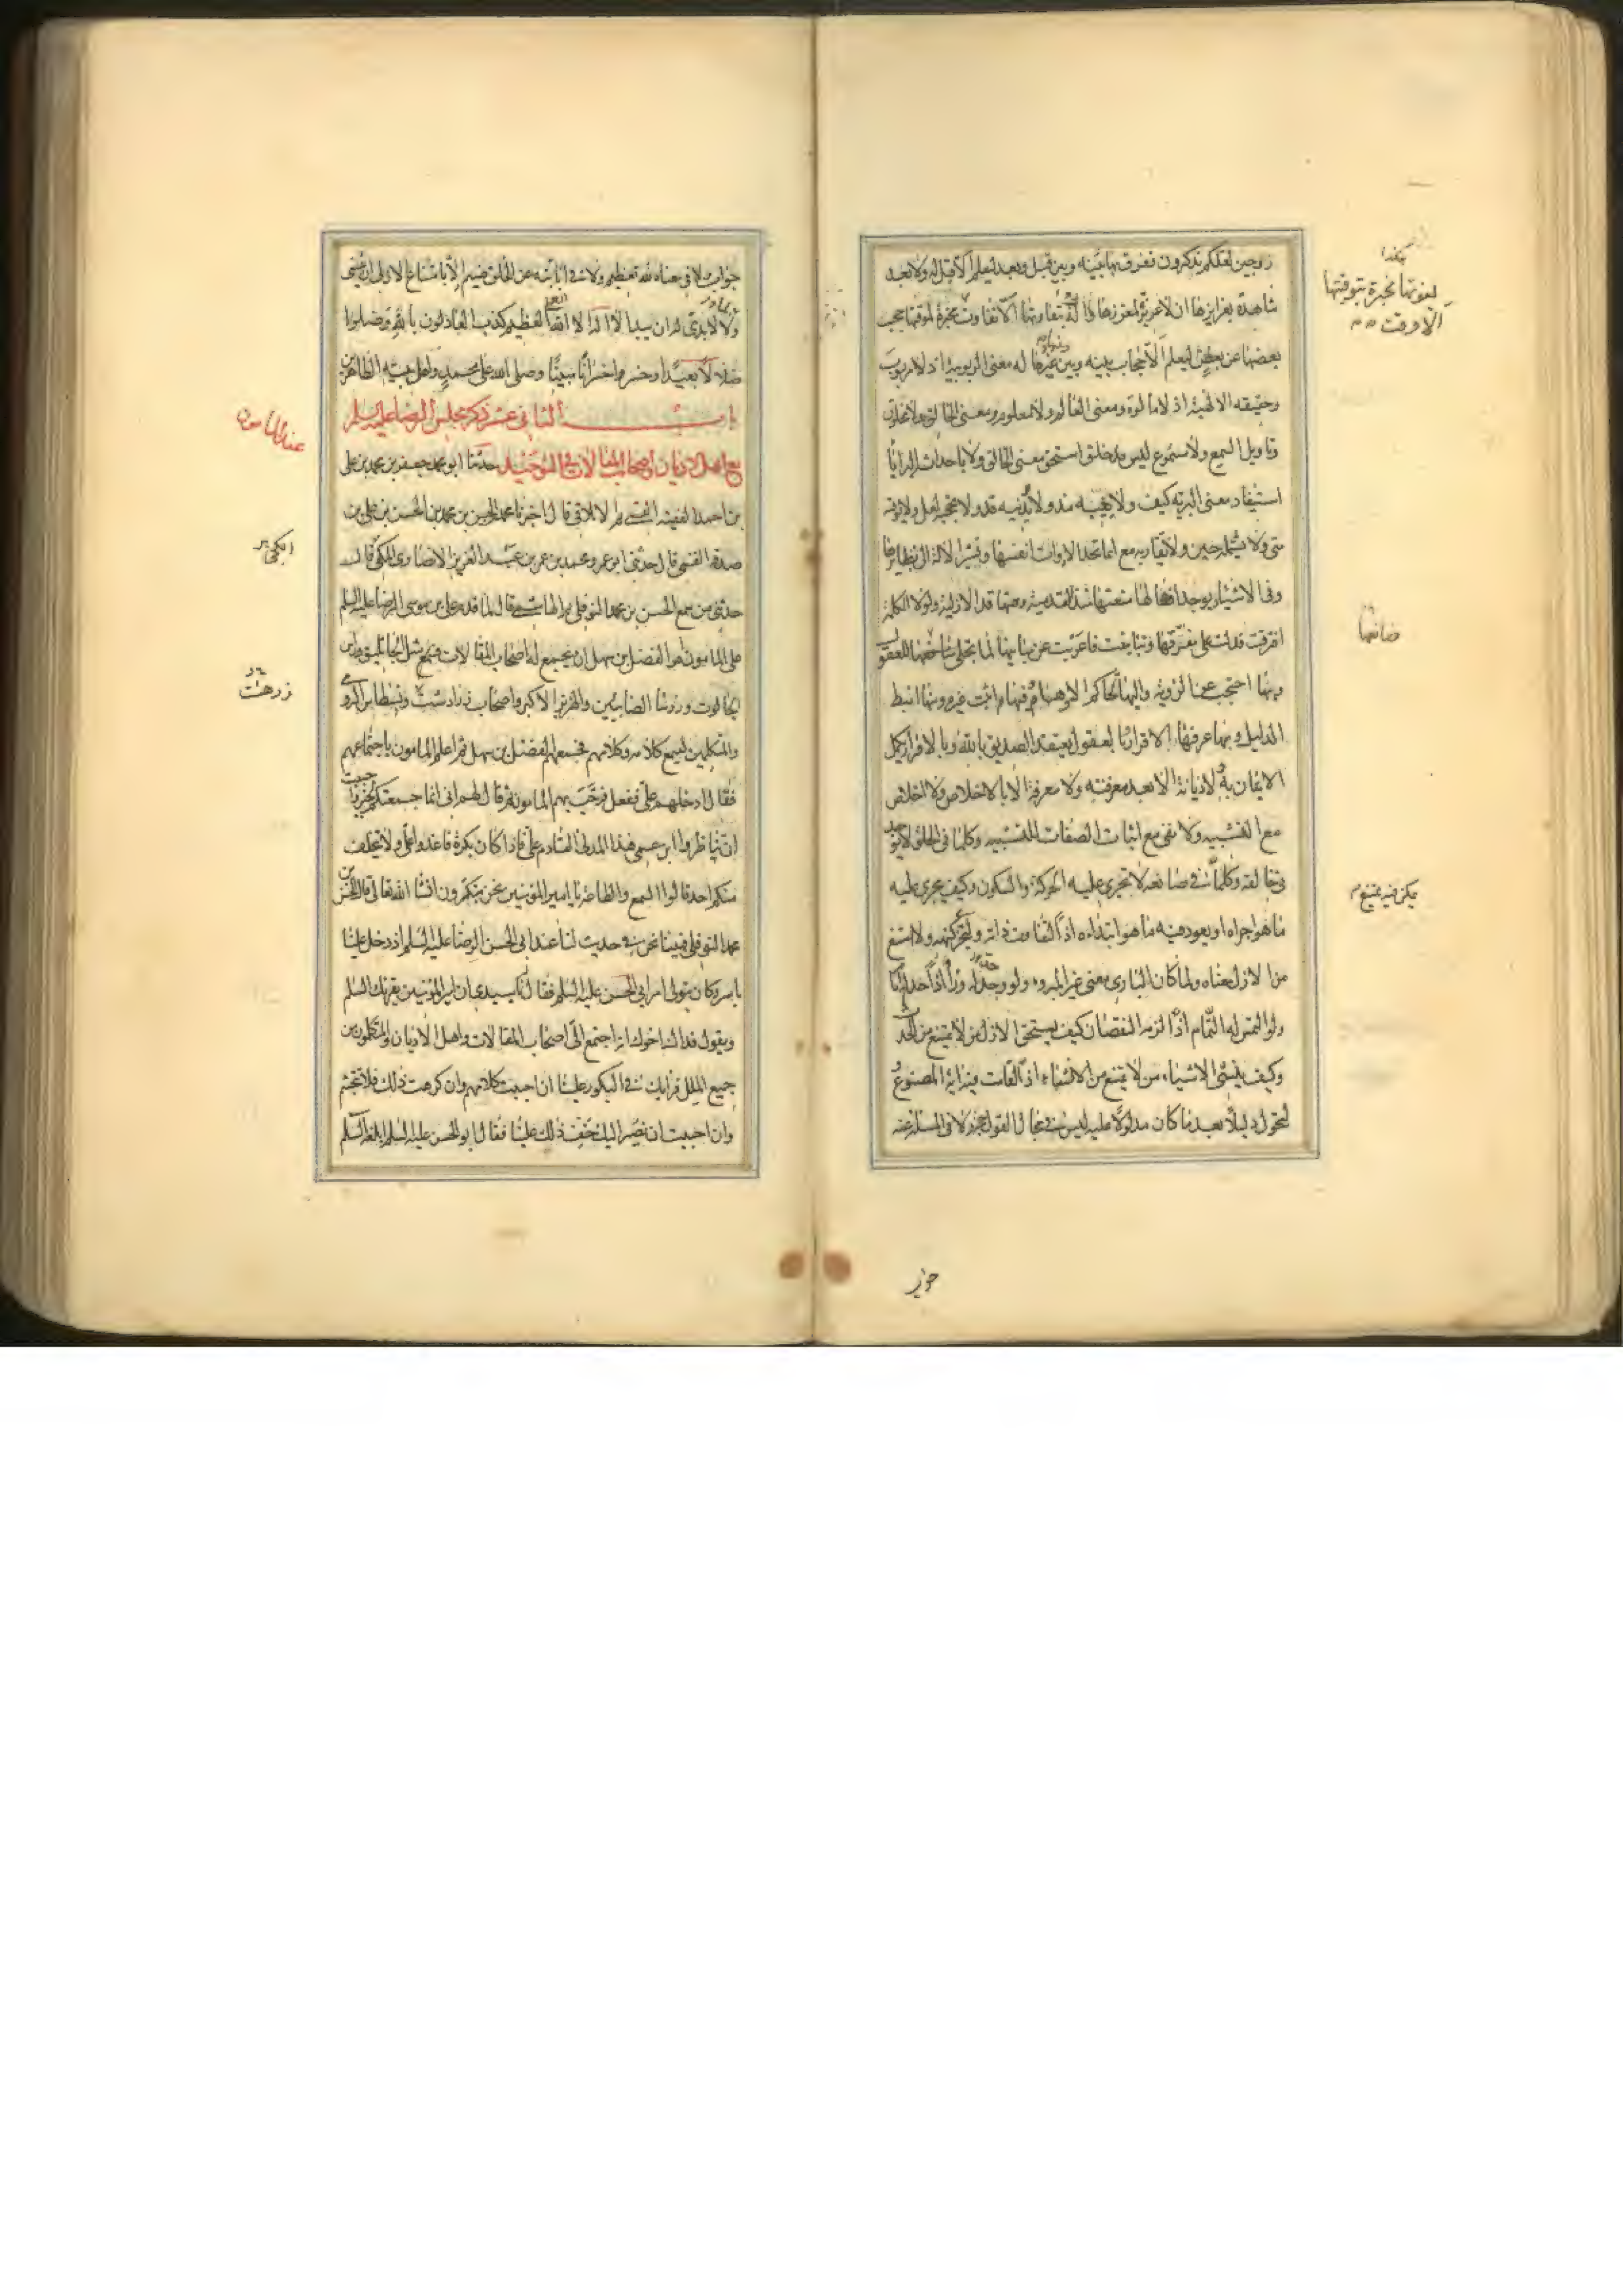 زوجين لعلكم تذكرون ففرق بها بينه وبين قبل وبعد ليعلم الا قبل له ولا بعد
شاهدة بغرايزها ان لا غريزة لمغرزها دالة بتفاوتها الا تفاوت مخبرة لموقتها حجب
بعضها عن بعض ليعلم الا حجاب بينه وبين غيرها له معنى الربوبية اذ لا مربوب
وحقيقة الالهية اذ لا مالوه ومعنى العالم ولا معلوم ومعنى الخالق ولا مخلوق
وتاويل السمع ولا مسموع ليس مذ خلق استحق معنى الخالق ولا باحداثه البرايا
استفاد معنى البرية كيف ولا يغيبه مذ ولا يدنيه قد ولا يحجبه لعل ولا يوقته
متى ولا يشمله حين ولا يقاربه مع انما تحد الادوات انفسها وتشير الالة الى نظايرها
وفى الاشياء يوجد افعالها منعتها مذ القدمية وحمتها قد الازلية ولولا الكلمة
افترقت فدلت على مفرقها وتباينت فاعربت عن مباينها لما تجلى صانعها للعقول
وبها احتجب عن الرؤية واليها تحاكم الاوهام وفيها اثبت غيره ومنها انبط
الدليل وبها عرفها الاقرار بالعقول يعتقد التصديق بالله وبالاقرار يكمل
الايمان به لا ديانة الا بعد معرفته ولا معرفة الا بالاخلاص ولا اخلاص
مع التشبيه ولا نفى مع اثبات الصفات للتشبيه وكلما فى الخلق لا يوجد
فى خالقه وكلما فى صانعه لا تجرى عليه الحركة والسكون وكيف يجرى عليه
ما هو اجراه او يعود فيه ما هو ابتداه اذا لتفاوت ذاته ولتجزء كنهه ولامتنع
من الازل معناه ولما كان البارى معنى غير المبروء ولو وجد له وراء اذا حد له امام
ولو التمس له التمام اذا لزمه النقصان كيف يستحق الازل من لا يمتنع من الحدث
وكيف ينشئ الاشياء من لا يمتنع من الانشاء اذا لقامت فيه اية المصنوع
لتحول دليلا بعد ما كان مدلولا عليه ليس فى محال القول حجة ولا فى المسئلة عنه
صانعها
جواب
جواب ولا فى معناه لله تعظيم ولا فى ابانته عن الخلق ضيم الا بامتناع الازلى ان يثنى
ولما لا بدى له ان يبدا لا اله الا الله العلى العظيم كذب العادلون بالله وضلوا
ضلالا بعيدا وخسروا خسرانا مبينا وصلى الله على محمد واهل بيته الطاهرين
باب الثانى عشر ذكر مجلس الرضا عليه السلم
عند المامون
مع اهل الاديان واصحاب المقالات فى التوحيد حدثنا ابو محمد جعفر بن محمد بن على
بن احمد الفقيه القمى ثم الايلاقى قال اخبرنا محمد الحسن بن محمد بن الحسن بن على بن
صدقة القمى قال حدثنى ابن عمرو محمد بن عمر بن عبد العزيز الانصارى الكجى قال
حدثنى من سمع الحسن بن محمد النوفلى ثم الهاشمى قال لما قدم على بن موسى الرضا عليه السلم
على المامون امر الفضل بن سهل ان يجمع له اصحاب المقالات مثل الجاثليق وراس
الجالوت ورؤسا الصابيين والهربذ الاكبر واصحاب زرادشت ونسطاس الرومى
والمتكلمين ليسمع كلامه وكلامهم فجمعهم الفضل بن سهل ثم اعلم المامون باجتماعهم
فقال ادخلهم على ففعل فرحب بهم المامون ثم قال لهم انى انما جمعتكم لخير واحببت
ان تناظروا ابن عمى هذا المدنى القادم على فاذا كان بكرة فاغدوا على ولا يتخلف
منكم احد قالوا السمع والطاعة يا امير المؤمنين نحن مبكرون انشا الله تعالى قال الحسن بن
محمد النوفلى فبينا نحن فى حديث لنا عند ابى الحسن الرضا عليه السلم اذ دخل علينا
ياسر وكان يتولى امر ابى الحسن عليه السلم فقال له يا سيدى ان امير المؤمنين يقرئك السلم
ويقول فداك اخوك انه اجتمع الى اصحاب المقالات واهل الاديان والمتكلمون من
جميع الملل فرايك فى البكور علينا ان احببت كلامهم وان كرهت ذلك فلا تتجشم
وان احببت ان نصير اليك خف ذلك علينا فقال ابو الحسن عليه السلم ابلغه السلم